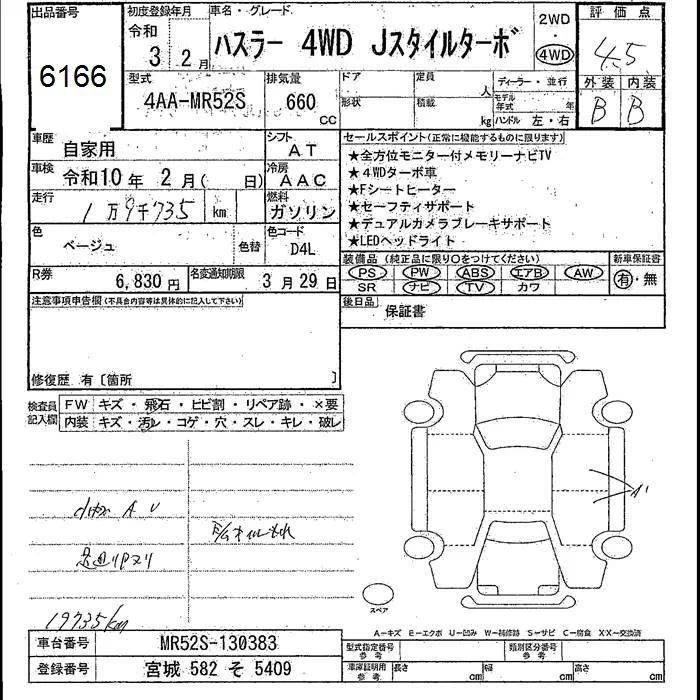 出品番号
6166
初度登録年月
令和
3 2月
車名・グレード
ハスラー 4WD Jスタイルターボ
2WD
・
4WD
評価点
4.5
外装 内装
B B
型式
4AA-MR52S
排気量
660 CC
ドア
定員
人
形状
積載
kg
ディーラー・並行
モデル年式 年
ハンドル 左・右
車歴
自家用
シフト
AT
車検
令和10年 2月( 日)
冷房
AAC
走行
1万9千735 km
燃料
ガソリン
色
ベージュ
色替
色コード
D4L
R券
6,830円
名変通知期限
3月29日
セールスポイント(正常に機能するものに限ります)
★全方位モニター付メモリーナビTV
★4WDターボ車
★Fシートヒーター
★セーフティサポート
★デュアルカメラブレーキサポート
★LEDヘッドライト
装備品 (純正品に限り○をつけてください)
PS PW ABS エアB AW
SR ナビ TV カワ
新車保証書
有・無
後日品
保証書
注意事項申告欄(不具合内容等は具体的に記入して下さい)
修復歴 有〔箇所 〕
検査員記入欄
FW キズ・飛石・ヒビ割・リペア跡・×要
内装 キズ・汚レ・コゲ・穴・スレ・キレ・破レ
19735km
スペア
A-キズ E-エクボ U-凹み W-補修跡 S-サビ C-腐食 XX-交換済
車台番号
MR52S-130383
登録番号
宮城 582 そ 5409
型式指定番号
参考
類別区分番号
参考
車庫証明用
参考
長さ cm
幅 cm
高さ cm